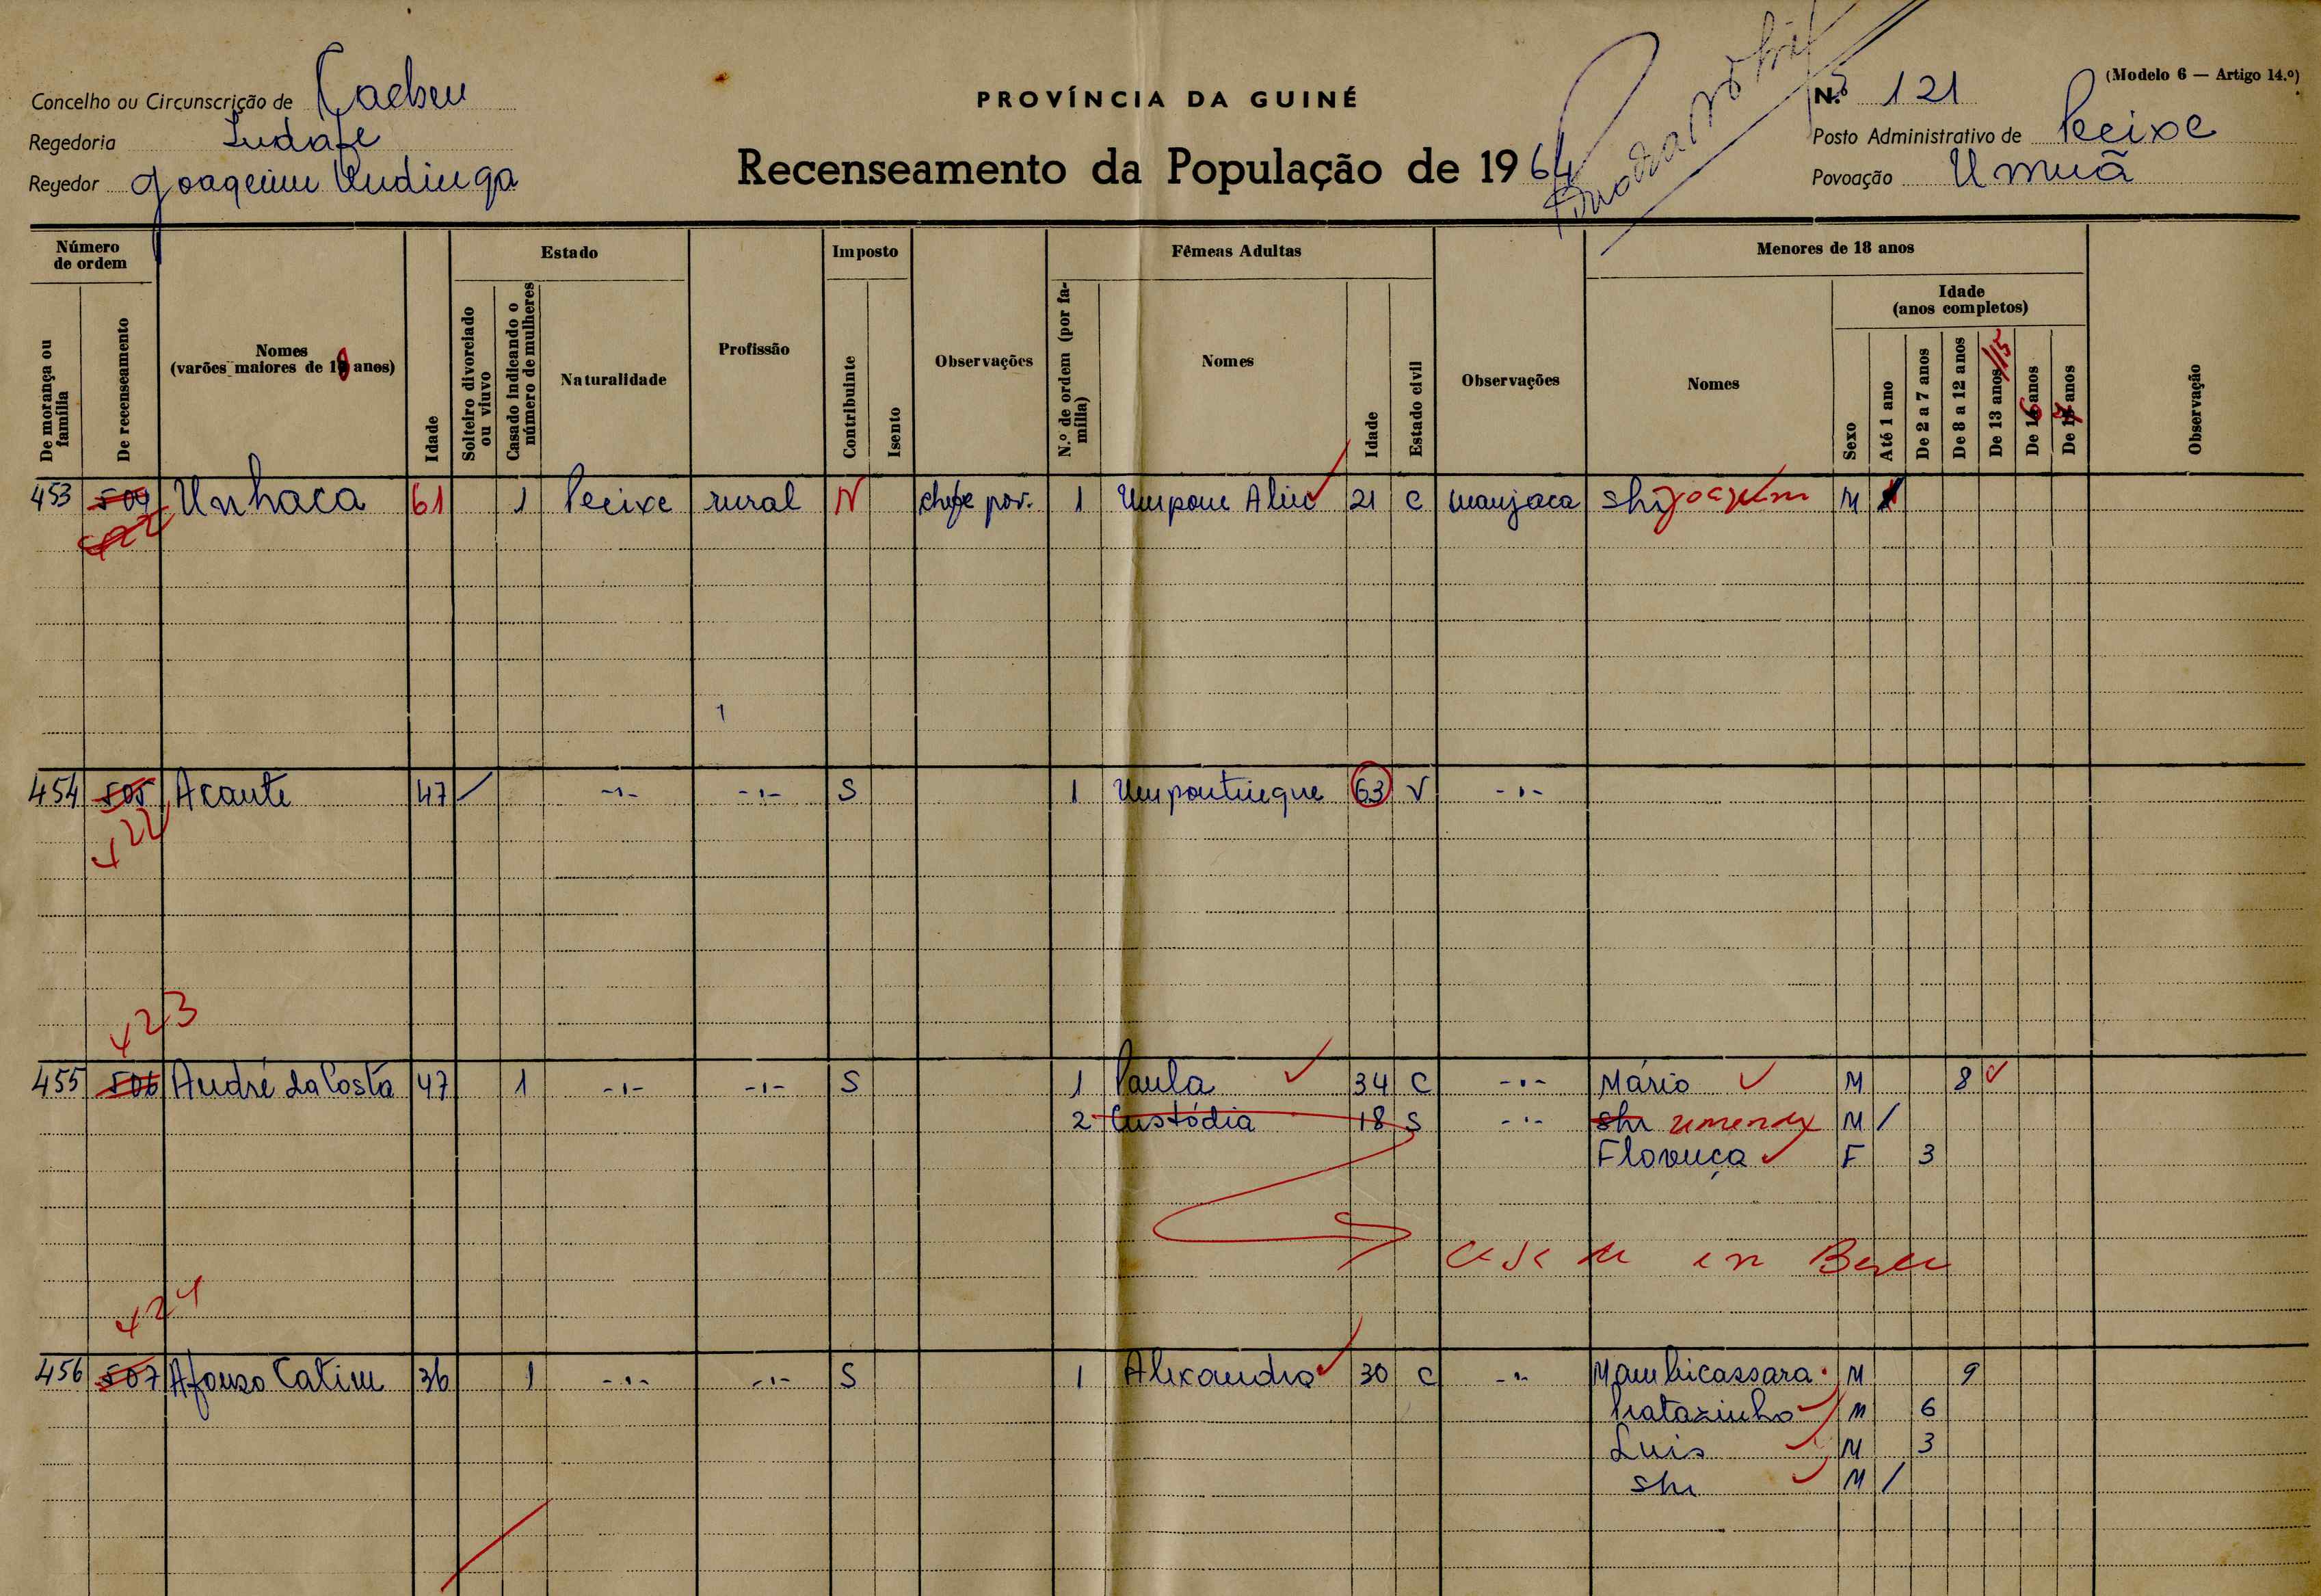 (Modelo 6 — Artigo 14.º)
Concelho ou Circunscrição de Cacheu
PROVÍNCIA DA GUINÉ
N.º 121
Regedoria
Posto Administrativo de Pecixe
Recenseamento da População de 1964
Regedor Joaquim
Povoação Umuã
Número de ordem
Estado
Imposto
Fêmeas Adultas
Menores de 18 anos
De morança ou família
De recenseamento
Nomes (varões maiores de 18 anos)
Idade
Solteiro divorciado ou viuvo
Casado indicando o número de mulheres
Naturalidade
Profissão
Contribuinte
Isento
Observações
N.º de ordem (por família)
Nomes
Idade
Estado civil
Observações
Nomes
Sexo
Idade (anos completos)
Até 1 ano
De 2 a 7 anos
De 8 a 12 anos
De 13 anos /15
De 16 anos
De 17 anos
Observação
453 504 Unhaca 61 1 Pecixe rural N chefe pov. 1 21 C manjaca shi joaquim M
454 505 Acante 47 / -"- -"- S 1 Umpontinque 63 V -"-
422
423
455 506 André da Costa 47 1 -"- -"- S 1 Paula 34 C -"- Mário M 8
2 Custódia 18 S -"- shi M /
Florença F 3
424
456 507 Afonso Catim 36 1 -"- -"- S 1 Alexandra 30 C -"- Mambicassara M 9
M 6
Luis M 3
shi M /